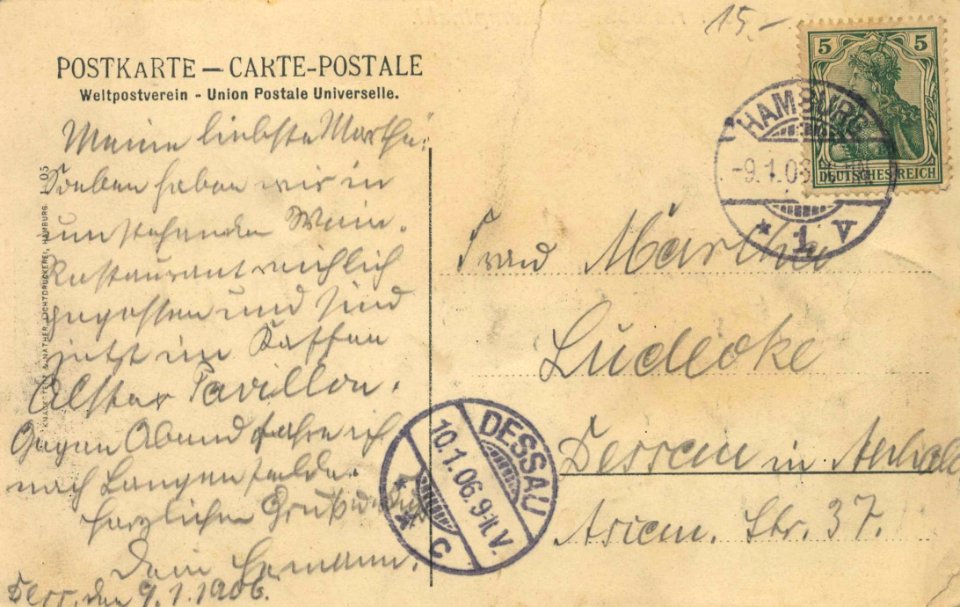 15.-
POSTKARTE — CARTE-POSTALE
Weltpostverein - Union Postale Universelle.
5 5
DEUTSCHES REICH
HAMBURG
-9.1.06.
* 1 V
Meine liebste Martha!
Soeben haben wir in
umstehenden Wein-
Restaurant reichlich
gegessen und sind
jetzt im Kaffee
Alster Pavillon.
Gegen Abend fahre ich
nach Langenfelde.
Herzlichen Gruß
Dein Hermann.
den 9.1.1906.
KNACKSTEDT & NÄTHER, LICHTDRUCKEREI, HAMBURG. 1 05
Frau Martha
Lüdecke
Dessau in Anhalt
Str. 37.
DESSAU
10.1.06.9-11.V.
* * C